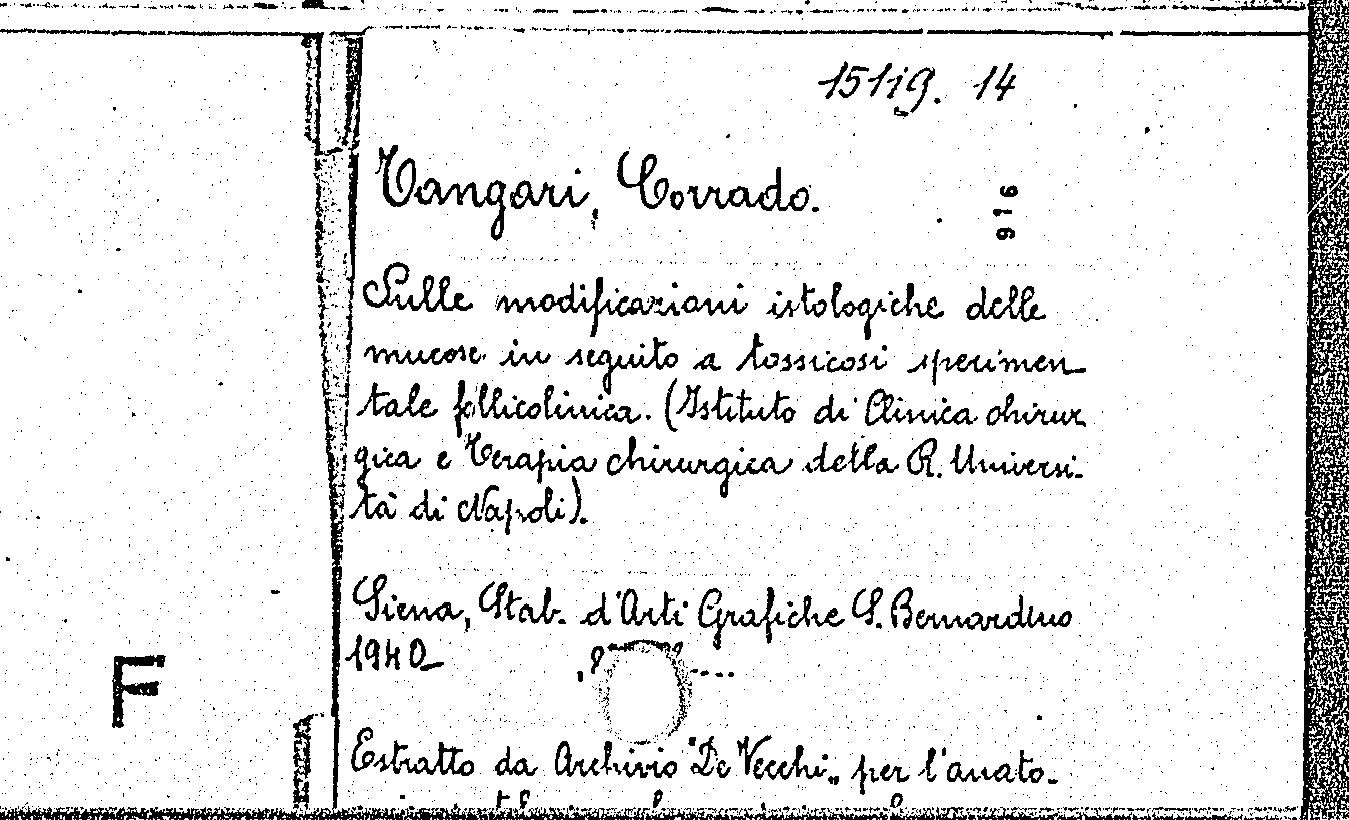 15119. 14
Tangari, Corrado.
916
Sulle modificazioni istologiche delle
mucose in seguito a tossicosi sperimen
tale follicolinica. (Istituto di Clinica chirur
gica e Terapia chirurgica della R. Universi-
tà di Napoli).
Siena, Stab. d'Arti Grafiche S. Bernardino
1940
F
Estratto da Archivio "De Vecchi" per l'anato-